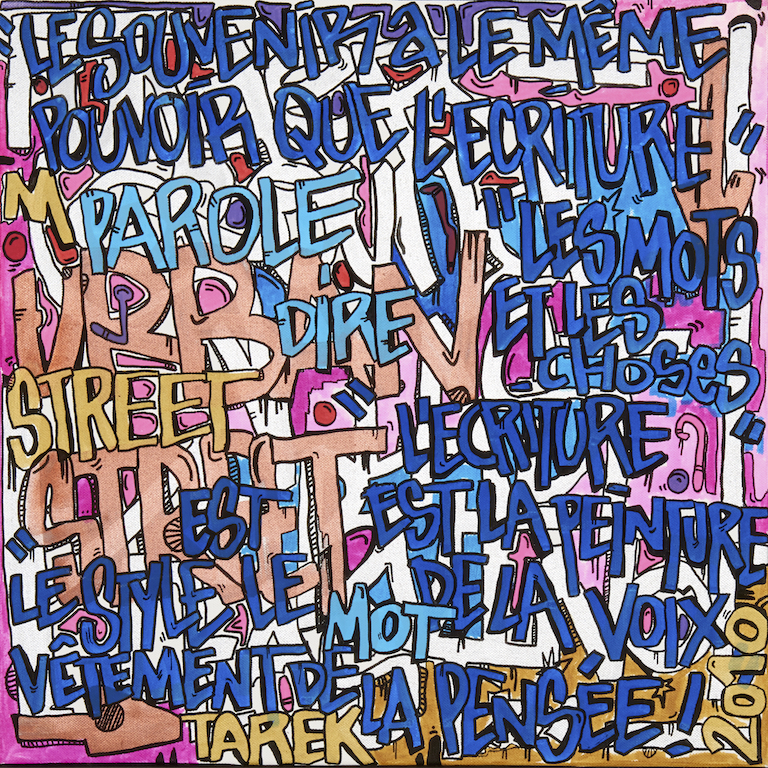 LE SOUVENIR A LE MÊME
POUVOIR QUE L'ECRITURE"
M PAROLE
"LES MOTS
URBAN
DIRE
ET LES
CHOSES"
STREET
"L'ECRITURE
STREET
EST
EST LA PEINTURE
DE LA VOIX
"LE STYLE LE
MOT
VÊTEMENT DE
LA PENSÉE!
TAREK
2010